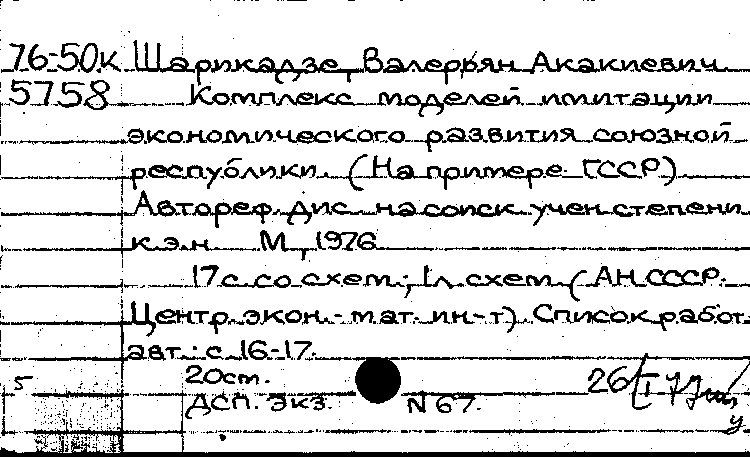 76-50к Шарикадзе, Валерьян Акакиевич
5758 Комплекс моделей имитации
экономического развития союзной
республики. (На примере ГССР)
Автореф. дис. на соиск. учен. степени
к.э.н. М., 1976
17 с. со схем.; 1 л. схем. (АН СССР.
Центр. экон.-мат. ин-т). Список работ
авт.: с. 16-17.
5 20 ст. 26/I 77
ДСП. экз. N 67.
у